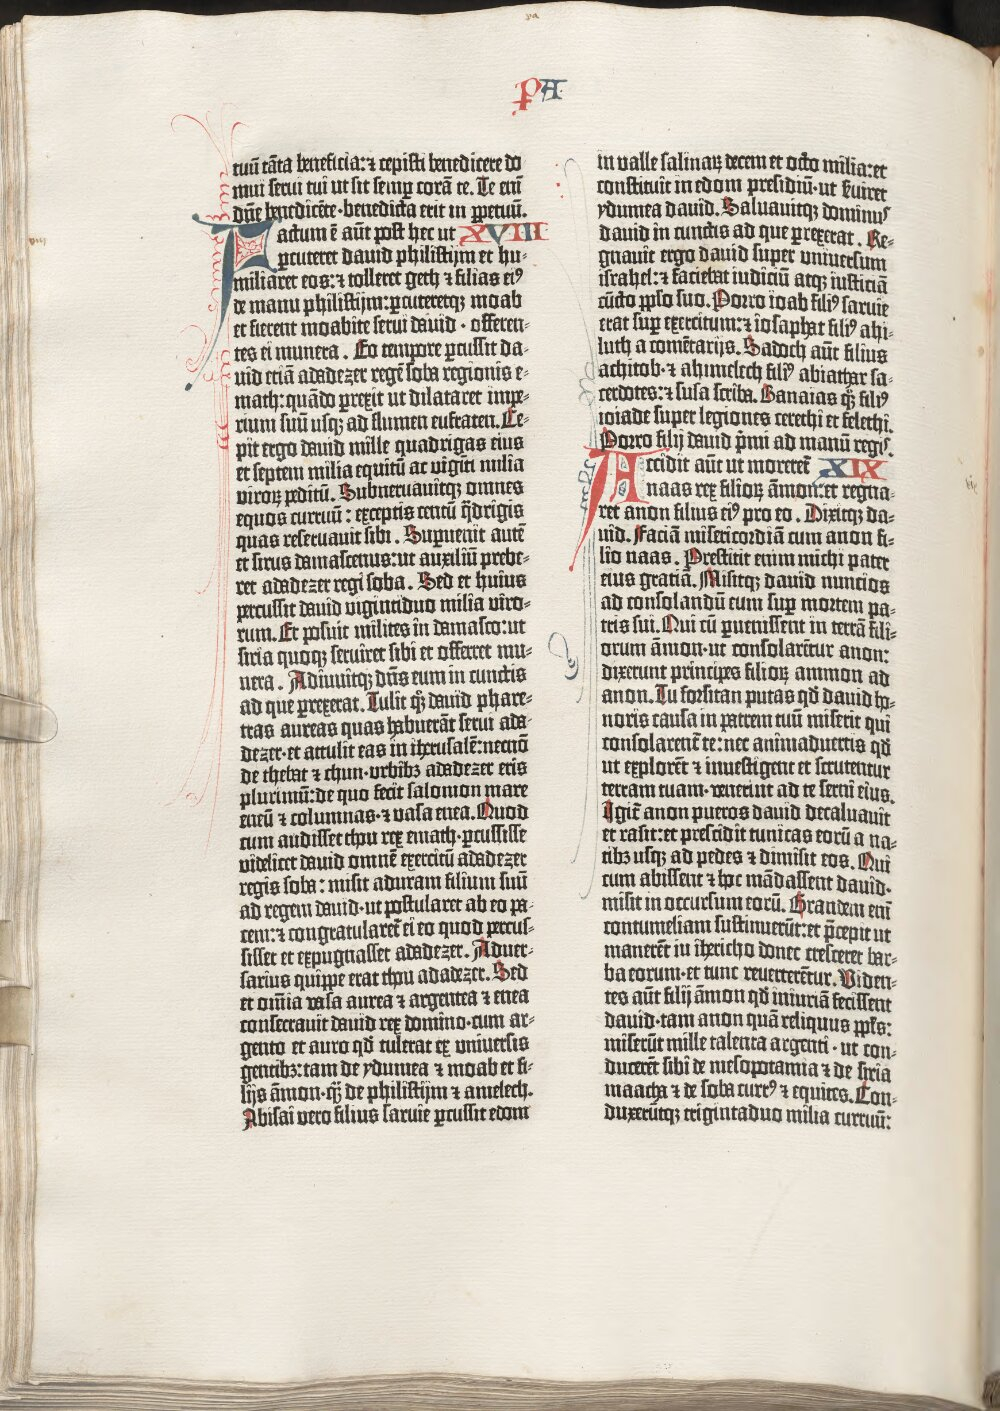 ꝑA
tuū tāta beneficia: ⁊ cepisti benedicere do
mui serui tui ut sit semꝑ corā te. Te eni
dn̄e benedicēte · benedicta erit in ꝑpetuū.
Factum ē aūt post hec ut XVIII
ꝑcuteret dauid philistijm et hu-
miliaret eos: ⁊ tolleret geth ⁊ filias eiꝰ
de manu philistijm: ꝑcuteretqꝫ moab
et fierent moabite serui dauid · offeren-
tes ei munera. Eo tempore ꝑcussit da-
uid etiā adadezer regē soba regionis e-
math: quādo ꝑrexit ut dilataret impe-
rium suū usqꝫ ad flumen eufraten. Ce-
pit ergo dauid mille quadrigas eius
et septem milia equitū ac viginti milia
viroꝝ peditū. Subneruauitqꝫ omnes
equos curruū: exceptis centū q̄drigis
quas reseruauit sibi. Suꝑuenit autē
et sirus damascenus: ut auxiliū prebe-
ret adadezer regi soba. Sed et huius
percussit dauid vigintiduo milia viro-
rum. Et posuit milites in damasco: ut
siria quoqꝫ seruiret sibi et offerret mu-
nera. Adiuuitqꝫ dn̄s eum in cunctis
ad que ꝑrexerat. Tulit qꝫ dauid phare-
tras aureas quas habuerāt serui ada-
dezer · et attulit eas in iherusalē: necnō
de thebat ⁊ chun · vrbibꝫ adadezer eris
plurimū: de quo fecit salomon mare
eneū ⁊ columnas · ⁊ vasa enea. Quod
cum audisset thou rex emath · ꝑcussisse
videlicet dauid omnē exercitū adadezer
regis soba: misit aduram filium suū
ad regem dauid · ut postularet ab eo pa-
cem: ⁊ congratularet̄ ei eo quod percus-
sisset et expugnasset adadezer. Aduer-
sarius quippe erat thou adadezer. Sed
et omnia vasa aurea ⁊ argentea ⁊ enea
consecrauit dauid rex domino · cum ar-
gento et auro qd̄ tulerat ex vniuersis
gentibꝫ: tam de ydumea ⁊ moab et fi-
lijs āmon · qꝫ̄ de philistijm ⁊ amelech.
Abisai vero filius saruie ꝑcussit edom
in valle salinaꝝ decem et octo milia: et
constituit in edom presidiū · ut ẜuiret
ydumea dauid. Saluauitqꝫ dominus
dauid in cunctis ad que ꝑrexerat. Re-
gnauit ergo dauid super vniuersum
israhel: ⁊ faciebat iudiciū atqꝫ iusticiā
cūcto ppl̄o suo. Porro ioab filiꝰ saruie
erat suꝑ exercitum: ⁊ iosaphat filiꝰ ahi-
luth a comētarijs. Sadoch aūt filius
achitob · ⁊ ahimelech filiꝰ abiathar sa-
cerdotes: ⁊ susa scriba. Banaias qꝫ̄ filiꝰ
ioiade super legiones cerethi et felethi.
Porro filij dauid p̄mi ad manū regis.
Accidit aūt ut moreret̄ XIX
naas rex filioꝝ āmon: et regna-
ret anon filius eiꝰ pro eo. Dixitqꝫ da-
uid. Faciā misericordiā cum anon fi-
lio naas. Prestitit enim michi pater
eius gratiā. Misitqꝫ dauid nuncios
ad consolandū eum suꝑ mortem pa-
tris sui. Qui cū ꝑuenissent in terrā fili-
orum āmon · ut consolarētur anon:
dixerunt principes filioꝝ ammon ad
anon. Tu forsitan putas qd̄ dauid ho-
noris causa in patrem tuū miserit qui
consolarent̄ te: nec animaduertis qd̄
ut explorēt ⁊ inuestigent et scrutentur
terram tuam · venerint ad te serui eius.
Igit̄ anon pueros dauid decaluauit
et rasit: et prescidit tunicas eorū a na-
tibꝫ usqꝫ ad pedes ⁊ dimisit eos. Qui
cum abissent ⁊ hoc mādassent dauid ·
misit in occursum eorū. Grandem enī
contumeliam sustinuerūt: et p̄cepit ut
manerēt in ihericho donec cresceret bar-
ba eorum · et tunc reuerterētur. Viden-
tes aūt filij āmon qd̄ iniuriā fecissent
dauid · tam anon quā reliquus ppl̄s:
miserūt mille talenta argenti · ut con-
ducerēt sibi de mesopotamia ⁊ de siria
maacha ⁊ de soba currꝰ ⁊ equites. Con-
duxerūtqꝫ trigintaduo milia curruū: